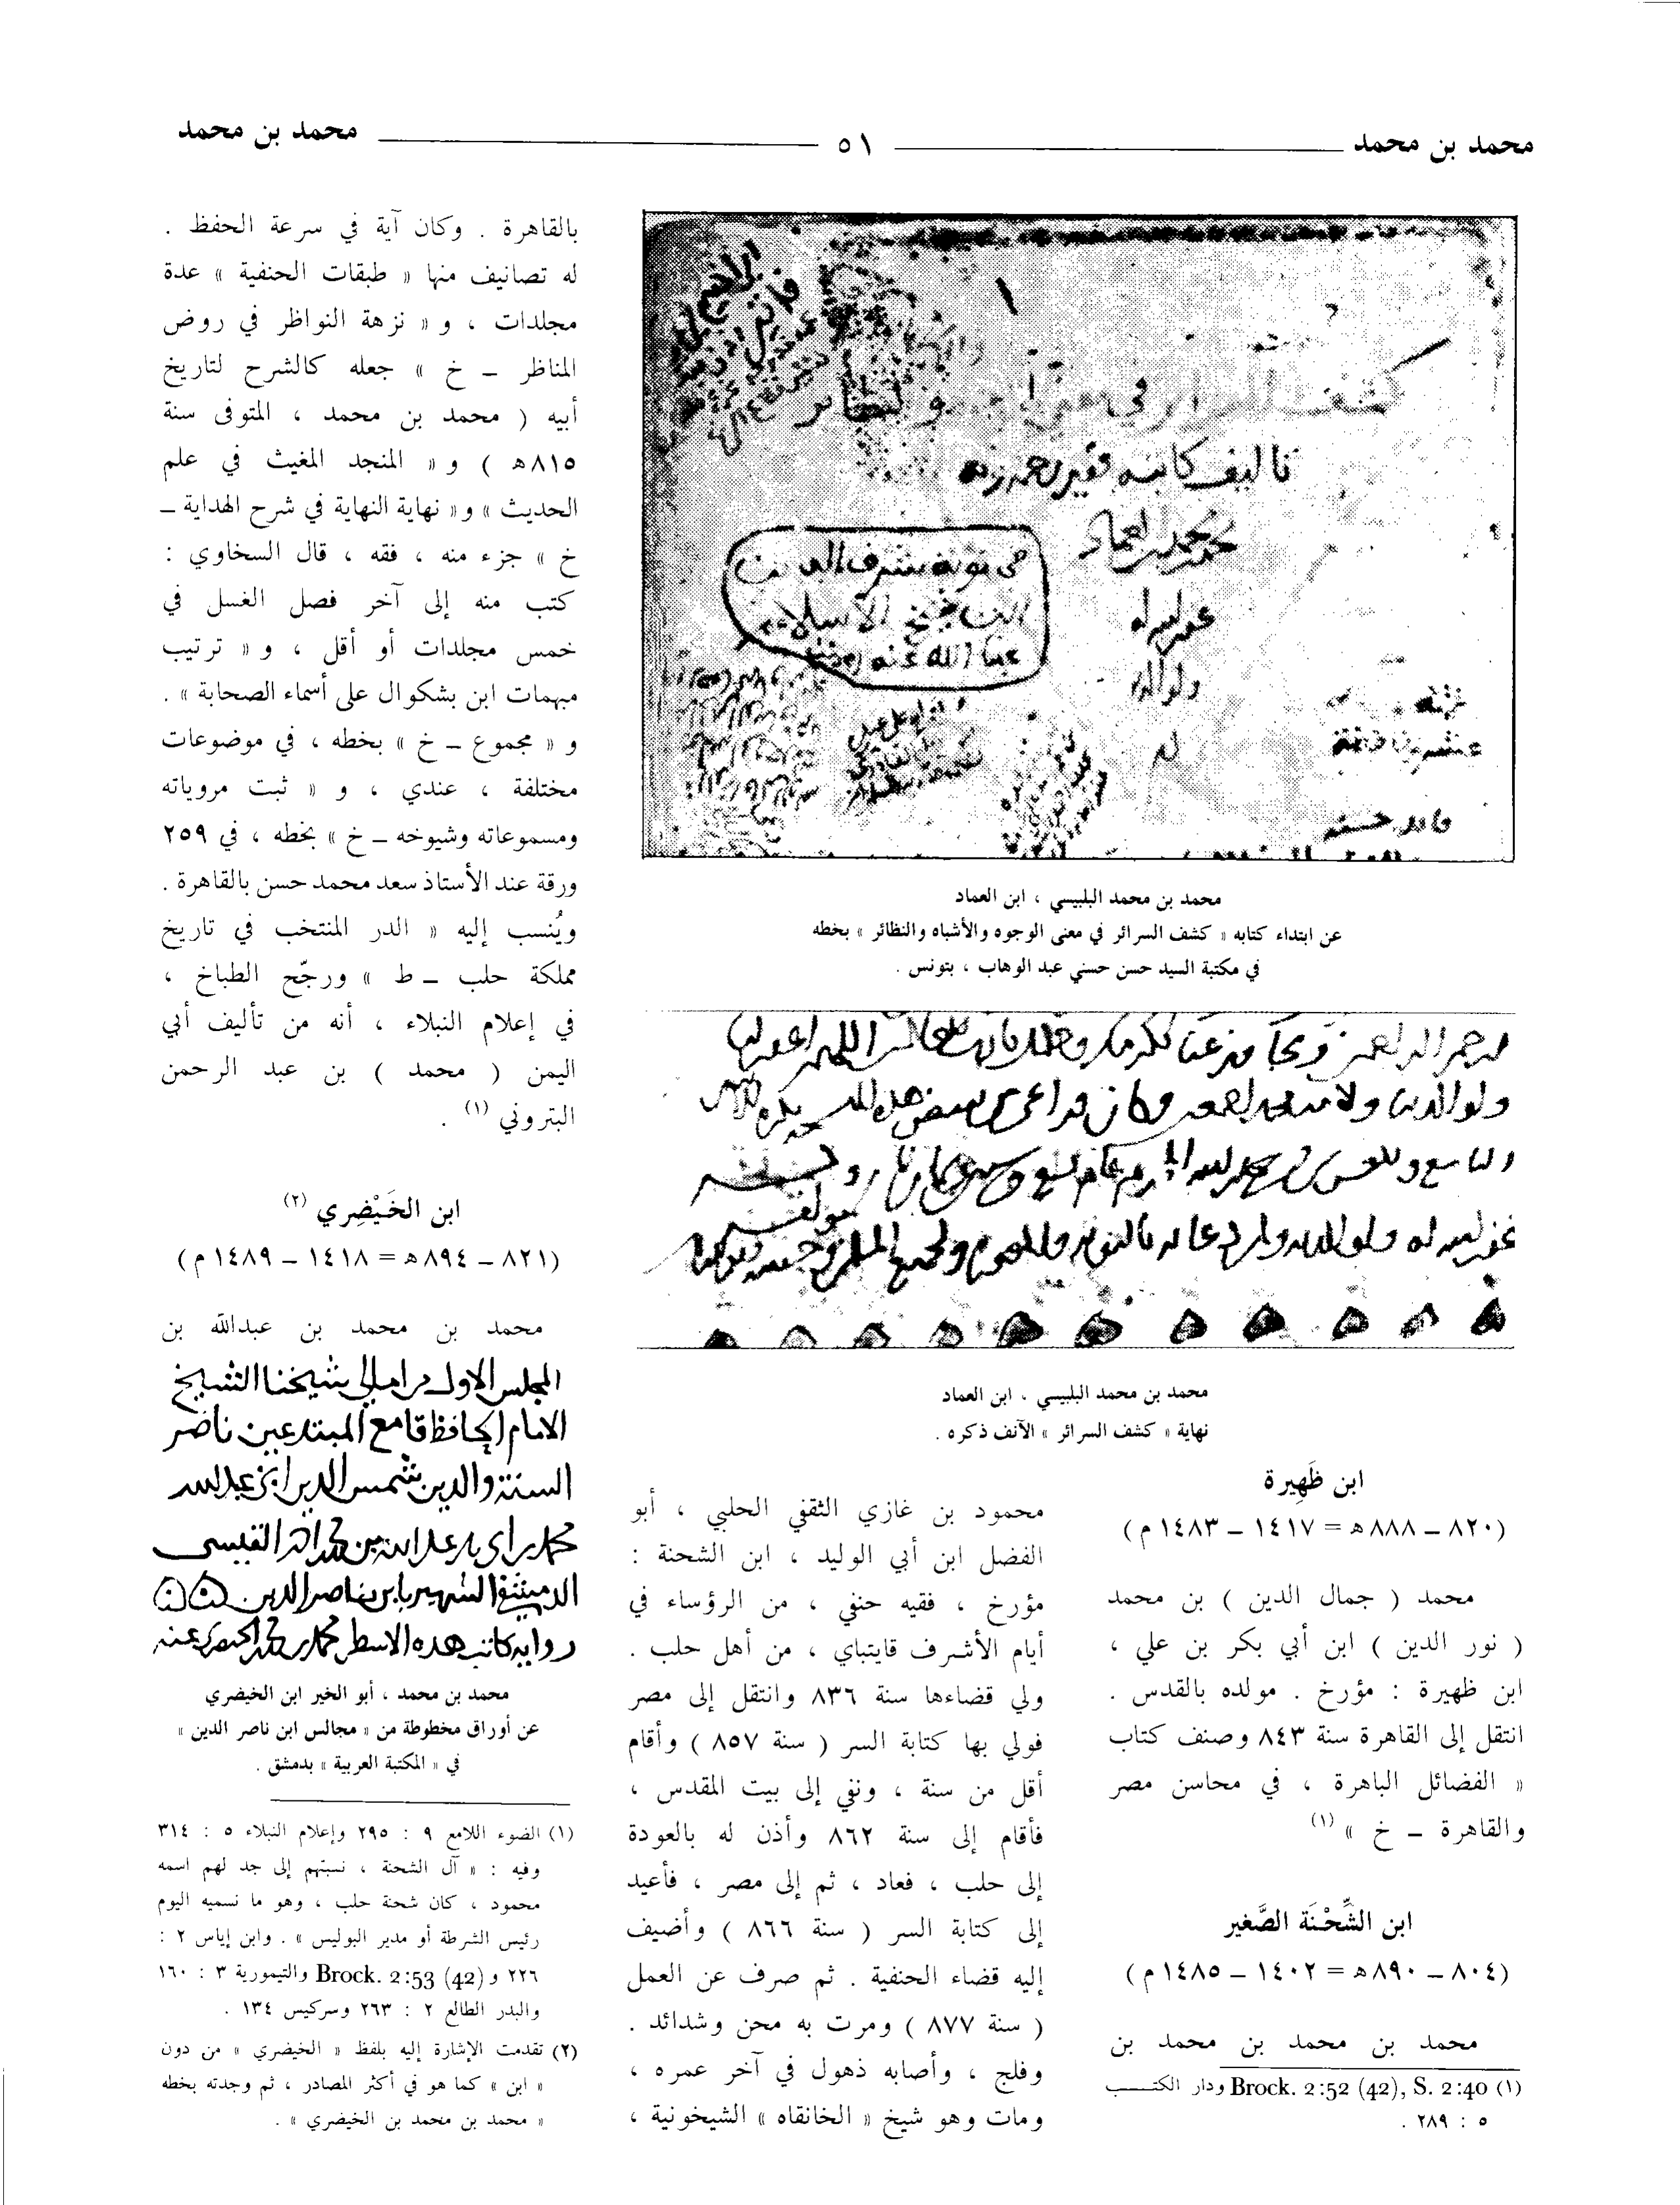 محمد بن محمد
٥١
محمد بن محمد
محمد بن محمد البلبيسي ، ابن العماد
عن ابتداء كتابه « كشف السرائر في معنى الوجوه والأشباه والنظائر » بخطه
في مكتبة السيد حسن حسني عبد الوهاب ، بتونس .
محمد بن محمد البلبيسي ، ابن العماد
نهاية « كشف السرائر » الآنف ذكره .
ابن ظَهِيرة
(٨٢٠ – ٨٨٨ ه = ١٤١٧ – ١٤٨٣ م)
محمد ( جمال الدين ) بن محمد
( نور الدين ) ابن أبي بكر بن علي ،
ابن ظهيرة : مؤرخ . مولده بالقدس .
انتقل إلى القاهرة سنة ٨٤٣ وصنف كتاب
« الفضائل الباهرة ، في محاسن مصر
والقاهرة – خ » (١)
ابن الشِّحْنَة الصَّغير
(٨٠٤ – ٨٩٠ ه = ١٤٠٢ – ١٤٨٥ م)
محمد بن محمد بن محمد بن
(١) Brock. 2:52 (42), S. 2:40 ودار الكتب
٥ : ٢٨٩ .
محمود بن غازي الثقفي الحلبي ، أبو
الفضل ابن أبي الوليد ، ابن الشحنة :
مؤرخ ، فقيه حنفي ، من الرؤساء في
أيام الأشرف قايتباي ، من أهل حلب .
ولي قضاءها سنة ٨٣٦ وانتقل إلى مصر
فولي بها كتابة السر ( سنة ٨٥٧ ) وأقام
أقل من سنة ، ونفي إلى بيت المقدس ،
فأقام إلى سنة ٨٦٢ وأذن له بالعودة
إلى حلب ، فعاد ، ثم إلى مصر ، فأعيد
إلى كتابة السر ( سنة ٨٦٦ ) وأضيف
إليه قضاء الحنفية . ثم صرف عن العمل
( سنة ٨٧٧ ) ومرت به محن وشدائد .
وفلج ، وأصابه ذهول في آخر عمره ،
ومات وهو شيخ « الخانقاه » الشيخونية ،
بالقاهرة . وكان آية في سرعة الحفظ .
له تصانيف منها « طبقات الحنفية » عدة
مجلدات ، و « نزهة النواظر في روض
المناظر – خ » جعله كالشرح لتاريخ
أبيه ( محمد بن محمد ، المتوفى سنة
٨١٥ه ) و « المنجد المغيث في علم
الحديث » و « نهاية النهاية في شرح الهداية –
خ » جزء منه ، فقه ، قال السخاوي :
كتب منه إلى آخر فصل الغسل في
خمس مجلدات أو أقل ، و « ترتيب
مبهمات ابن بشكوال على أسماء الصحابة » .
و « مجموع – خ » بخطه ، في موضوعات
مختلفة ، عندي ، و « ثبت مروياته
ومسموعاته وشيوخه – خ » بخطه ، في ٢٥٩
ورقة عند الأستاذ سعد محمد حسن بالقاهرة .
ويُنسب إليه « الدر المنتخب في تاريخ
مملكة حلب – ط » ورجّح الطباخ ،
في إعلام النبلاء ، أنه من تأليف أبي
اليمن ( محمد ) بن عبد الرحمن
البتروني (١) .
ابن الخَيْضِري (٢)
(٨٢١ – ٨٩٤ ه = ١٤١٨ – ١٤٨٩ م)
محمد بن محمد بن عبدالله بن
المجلس الاول من امالي شيخنا الشيخ
الامام الحافظ قامع المبتدعين ناصر
السنة والدين شمس الدين ابي عبد الله
الدمشقي الشهير بابن ناصر الدين
رواية كاتب هذه الاسطر محمد بن محمد الخيضري عفي عنه
محمد بن محمد ، أبو الخير ابن الخيضري
عن أوراق مخطوطة من « مجالس ابن ناصر الدين »
في « المكتبة العربية » بدمشق .
(١) الضوء اللامع ٩ : ٢٩٥ وإعلام النبلاء ٥ : ٣١٤
وفيه : « آل الشحنة ، نسبتهم إلى جد لهم اسمه
محمود ، كان شحنة حلب ، وهو ما نسميه اليوم
رئيس الشرطة أو مدير البوليس » . وابن إياس ٢ :
٢٢٦ و Brock. 2:53 (42) والتيمورية ٣ : ١٦٠
والبدر الطالع ٢ : ٢٦٣ وسركيس ١٣٤ .
(٢) تقدمت الإشارة إليه بلفظ « الخيضري » من دون
« ابن » كما هو في أكثر المصادر ، ثم وجدته بخطه
« محمد بن محمد بن الخيضري » .